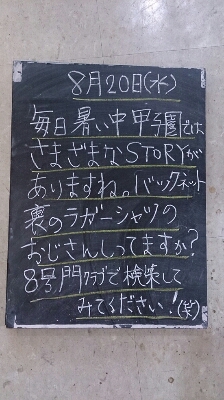 8月20日(水)
毎日暑い中甲子園では
さまざまなSTORYが
ありますね。バックネット
裏のラガーシャツの
おじさんしってますか?
8号門クラブで検索して
みてください!(笑)